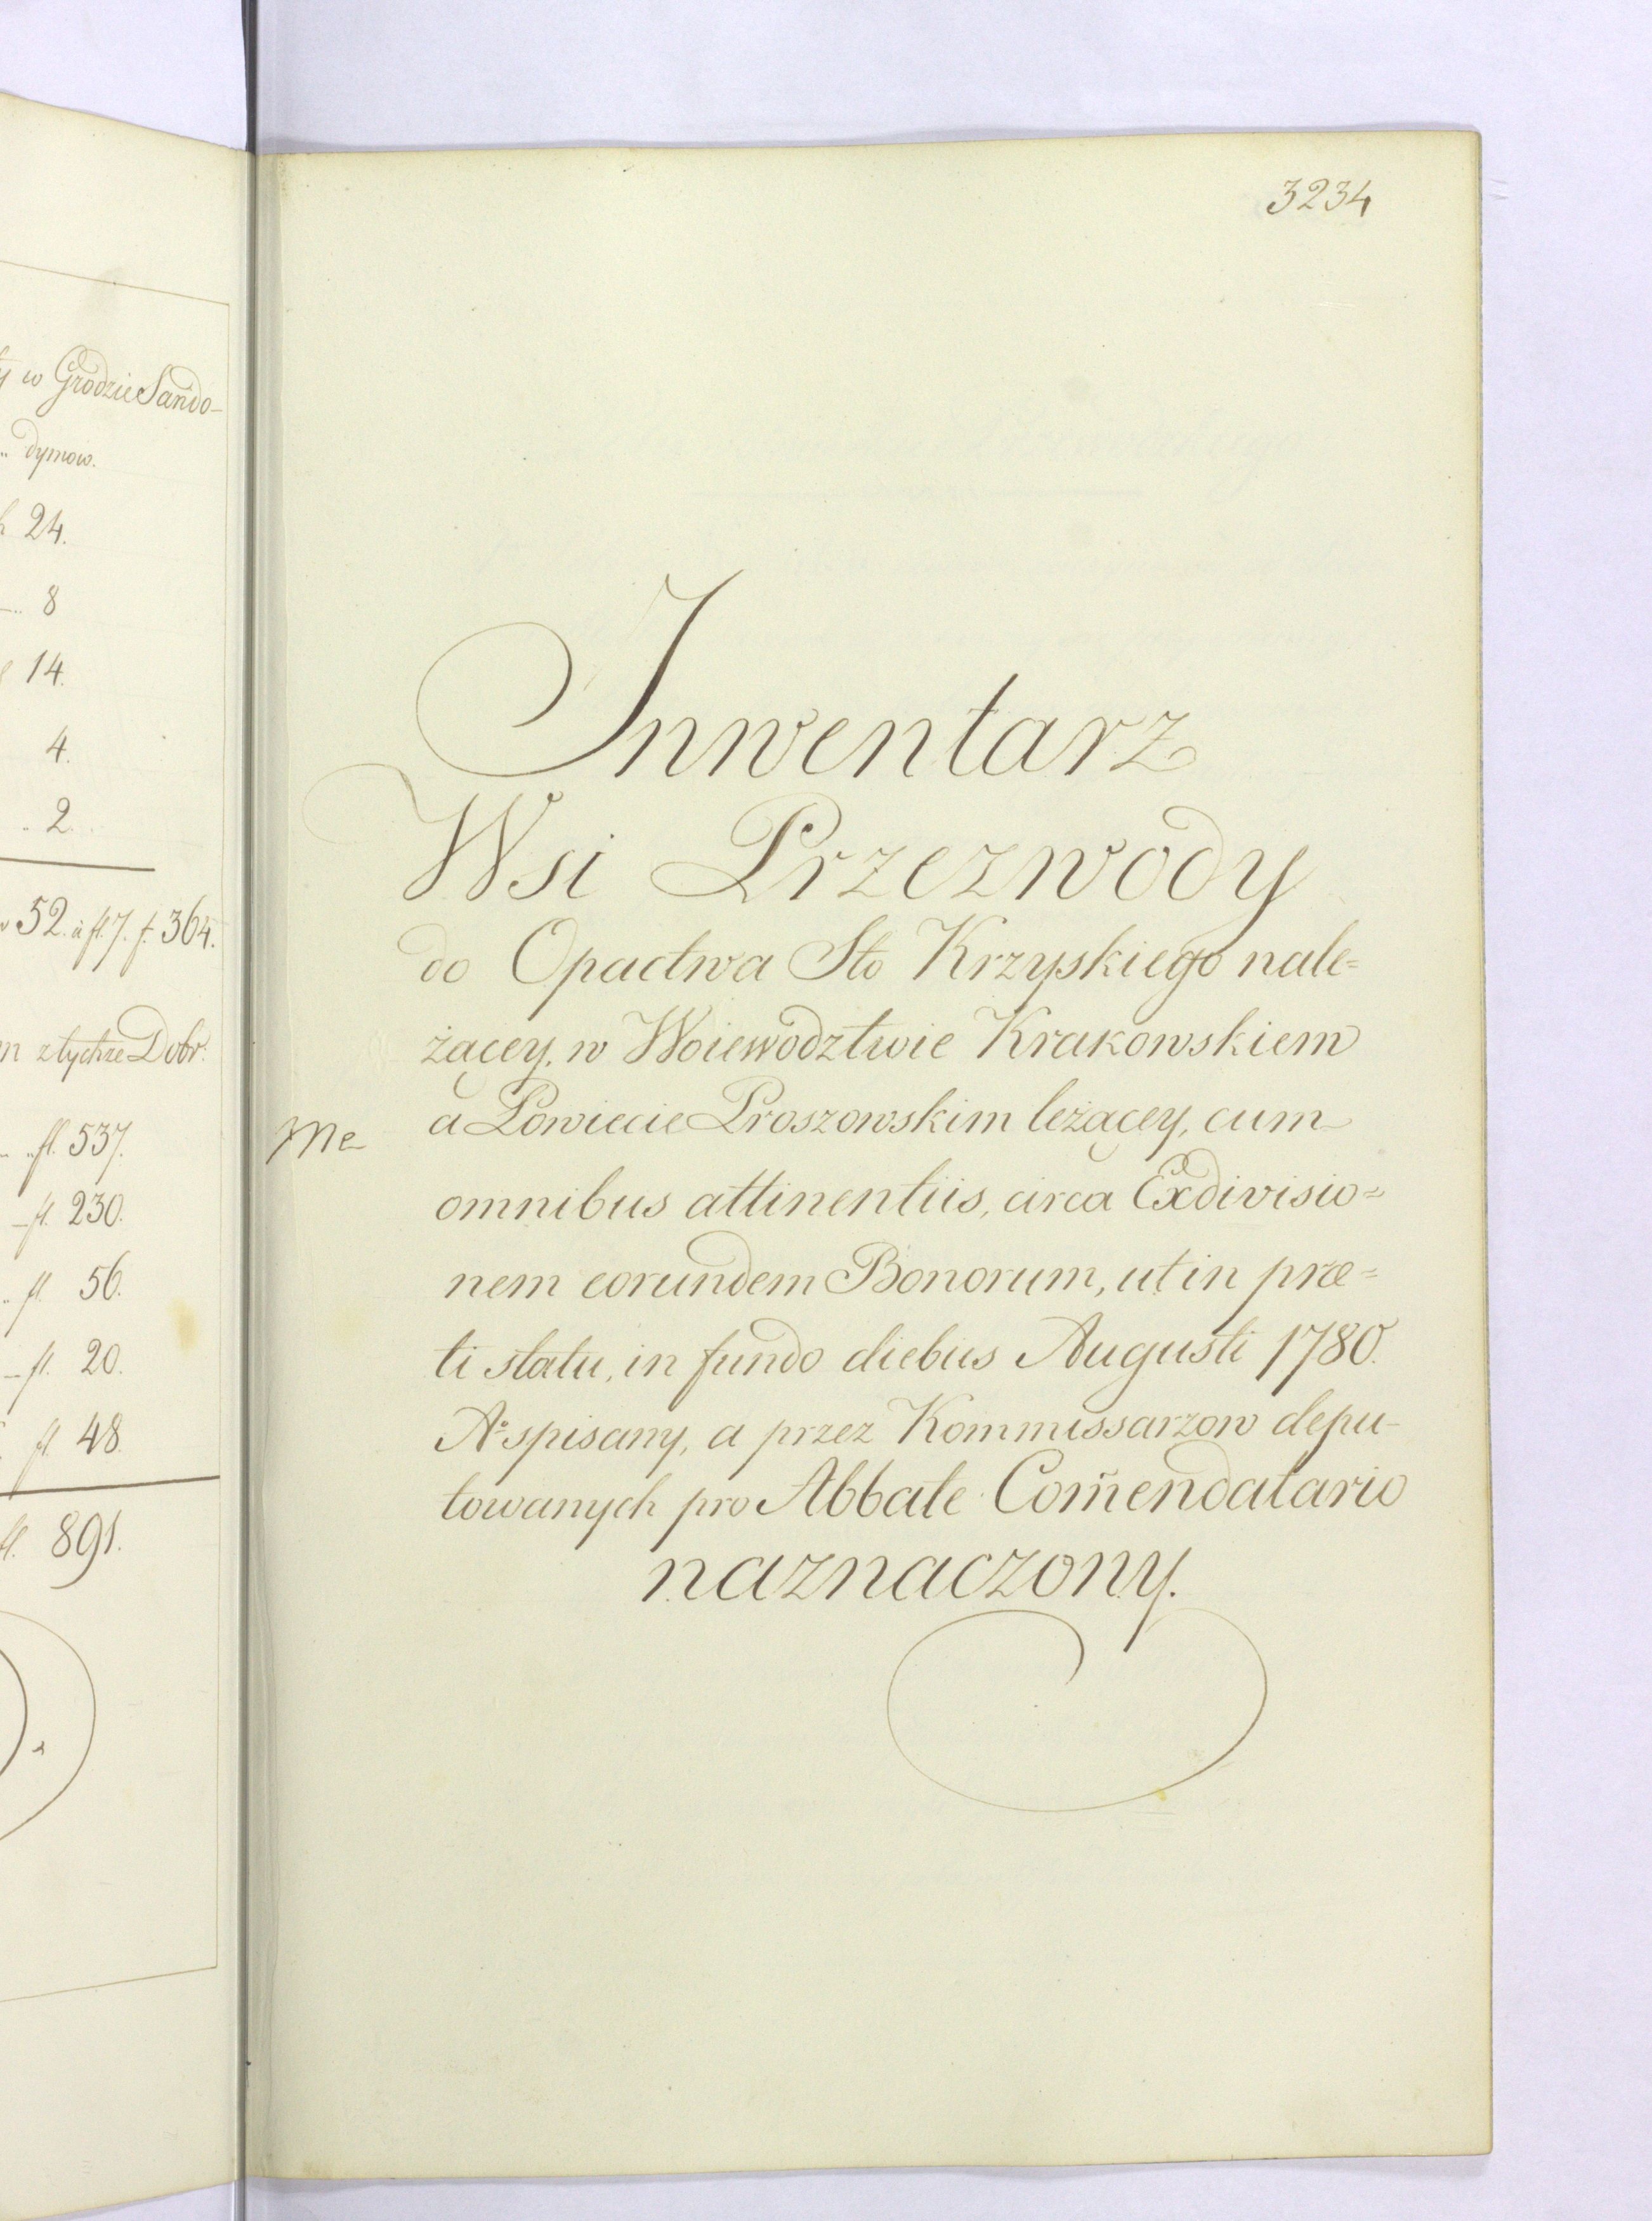 y w Grodzie Sando-
dymow.
24.
8
14.
4.
2.
52. à fl. 7. f. 364.
z tychże Dobr.
fl. 537.
fl. 230.
fl. 56.
fl. 20.
fl. 48.
fl. 891.
3234
Inwentarz
Wsi Przezwody
do Opactwa Sto Krzyskiego nale=
żącey, w Woiewodztwie Krakowskiem
a Powiecie Proszowskim leżącey, cum
me
omnibus attinentiis, circa Exdivisio=
nem eorundem Bonorum, ut in præ=
ti statu, in fundo diebus Augusti 1780.
Aº spisany, a przez Kommissarzow depu-
towanych pro Abbate Com̃endatario
naznaczony.